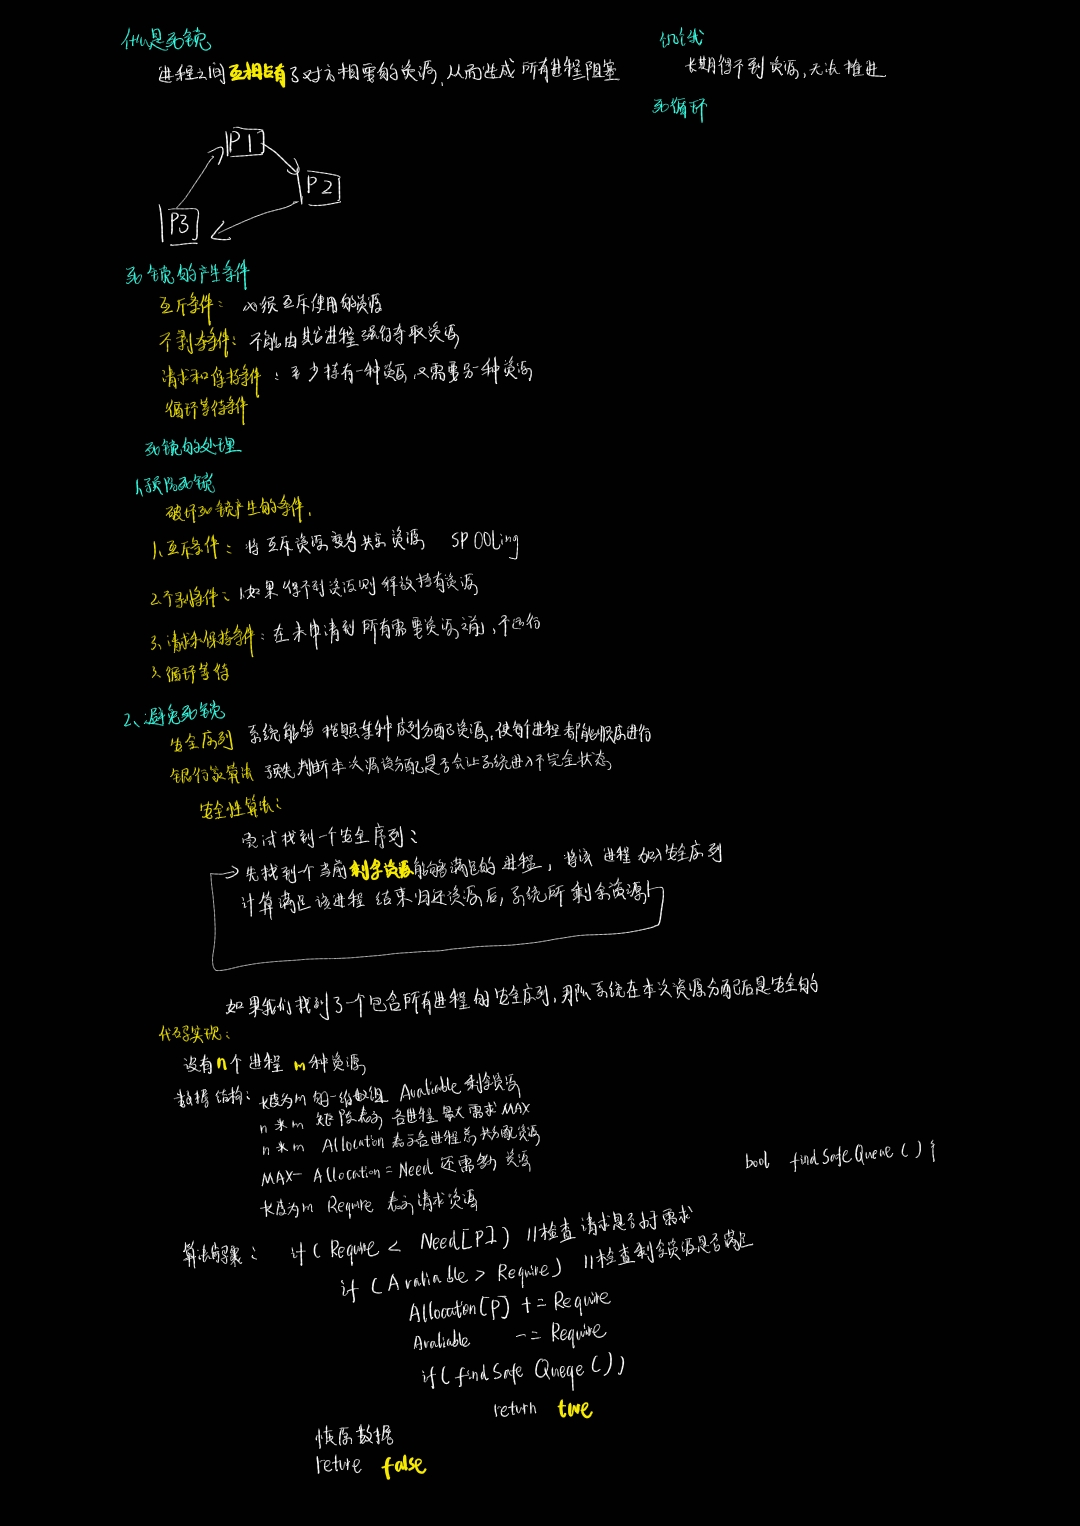 什么是死锁
进程之间互相占有了对方相要的资源,从而造成所有进程阻塞
饥饿
长期得不到资源,无法推进
死循环
P1
P2
P3
死锁的产生条件
互斥条件: 必须互斥使用的资源
不剥夺条件: 不能由其它进程强行夺取资源
请求和保持条件: 至少持有一种资源,又需要另一种资源
循环等待条件
死锁的处理
1、预防死锁
破坏死锁产生的条件.
1、互斥条件: 将互斥资源变为共享资源 SPOOLing
2、不剥夺条件: 如果得不到资源则释放持有资源
3、请求和保持条件: 在未申请到所有需要资源之前,不运行
3、循环等待
2、避免死锁
安全序列 系统能够按照某种序列分配资源,使每个进程都能顺序进行
银行家算法 预先判断本次资源分配是否会让系统进入不完全状态
安全性算法:
尝试找到一个安全序列:
先找到个当前剩余资源能够满足的进程,将该进程加入安全序列
计算满足该进程结束归还资源后,系统所剩余资源
如果我们找到了一个包含所有进程的安全序列,那么系统在本次资源分配后是安全的
代码实现:
设有n个进程 m种资源
数据结构: 长度为m的一维数组 Avaliable 剩余资源
n * m 矩阵表示 各进程最大需求 MAX
n * m Allocation 表示各进程 分配资源
MAX - Allocation = Need 还需 资源
长度为m Require 表示请求资源
bool findSafeQueue() {
算法步骤: if( Require < Need[P]) //检查请求是否 于需求
if (Avaliable > Require) //检查剩余资源是否满足
Allocation[P] += Require
Avaliable -= Require
if(findSafe Queqe())
return true
恢原数据
reture false